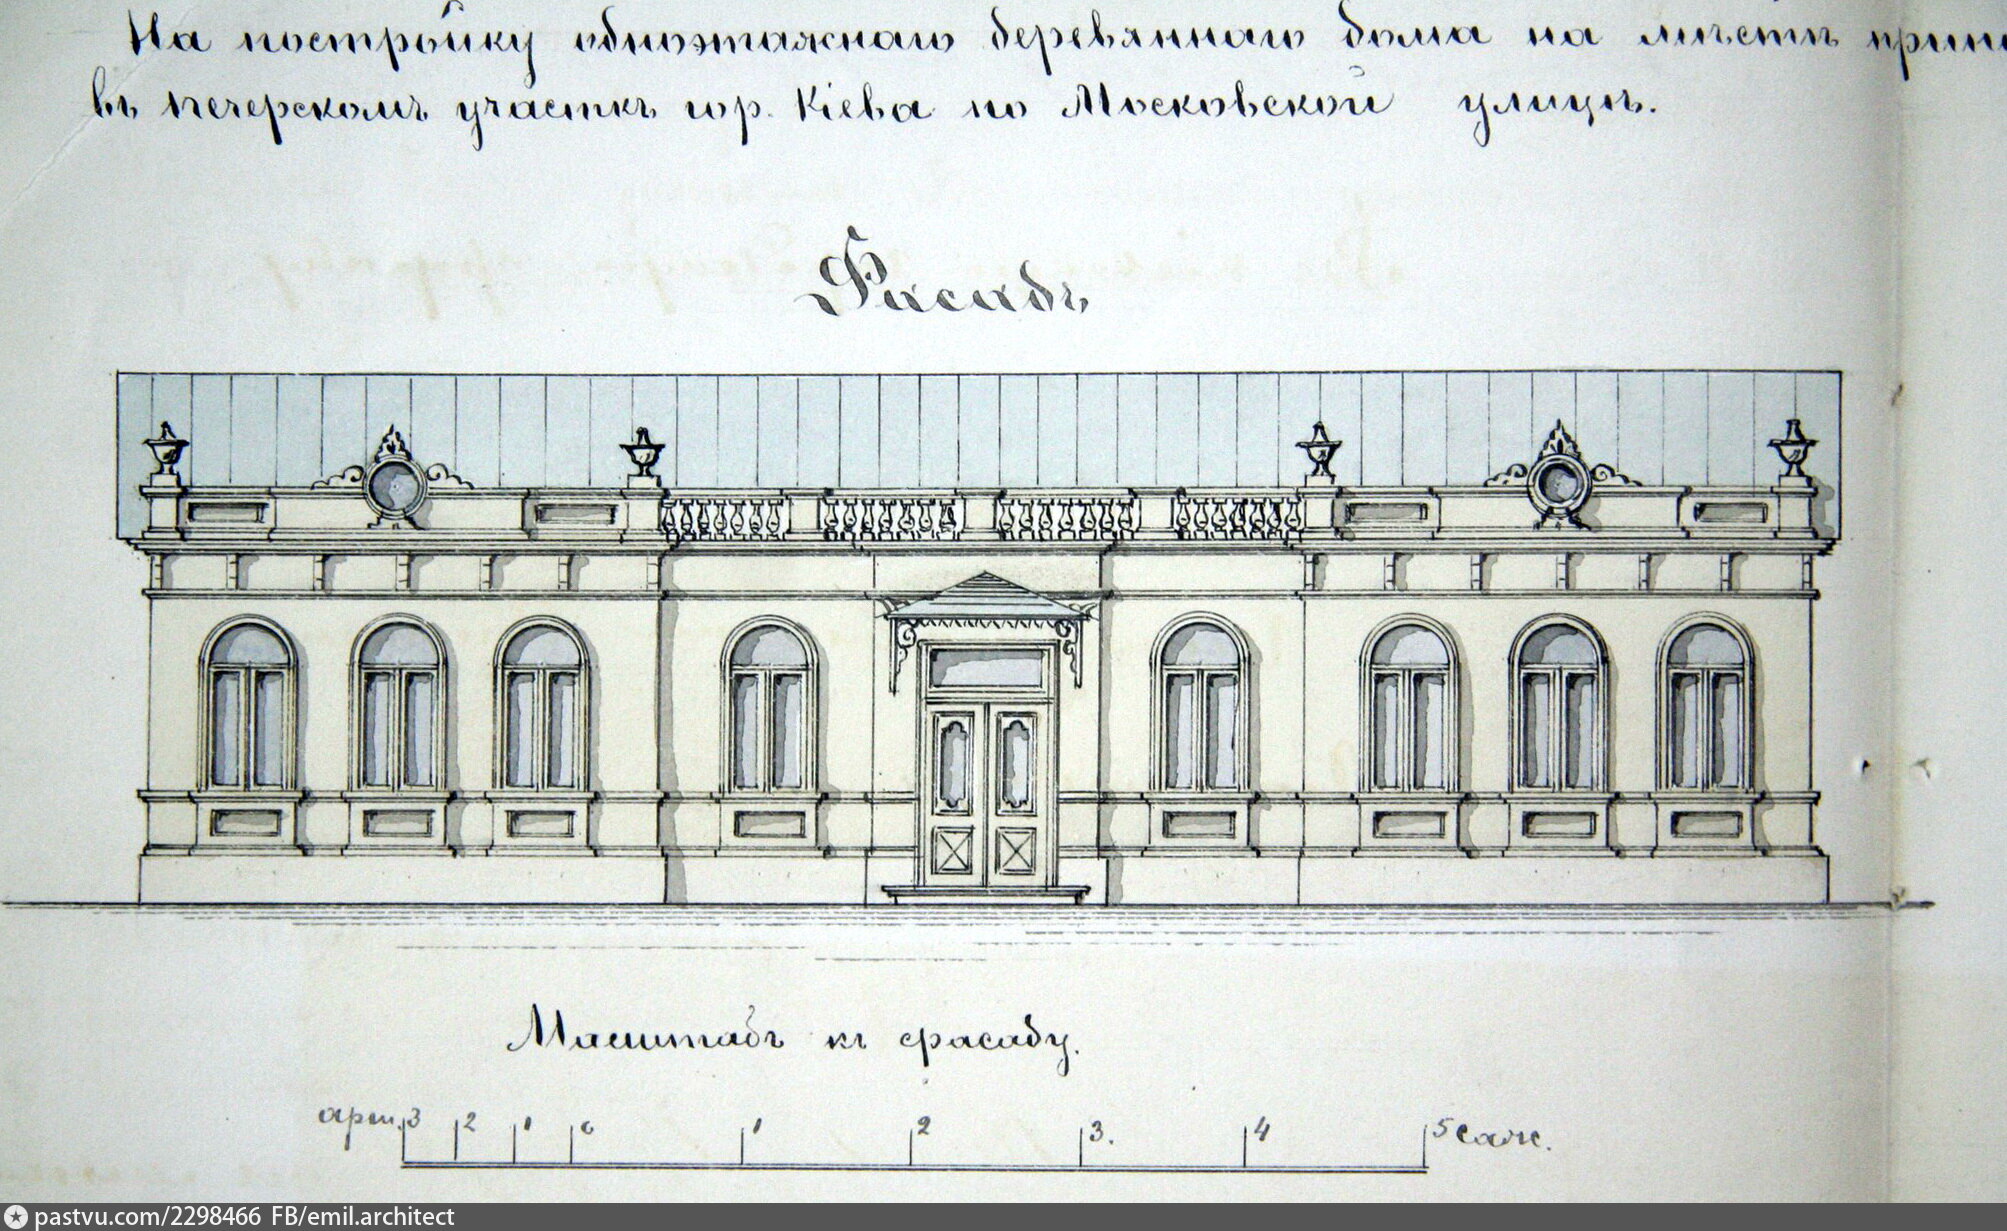 На постройку одноэтажнаго деревяннаго дома на мѣстѣ
въ печерскомъ участкѣ гор. Кіева по Московской улицѣ.
Фасадъ
Масштабъ къ фасаду.
арш. 3 2 1 0 1 2 3. 4 5 саж.
pastvu.com/2298466 FB/emil.architect